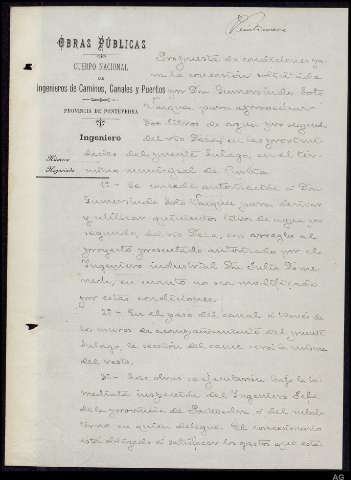 Veintinueve
OBRAS PÚBLICAS
CUERPO NACIONAL
DE
Ingenieros de Caminos, Canales y Puertos
PROVINCIA DE PONTEVEDRA
Ingeniero
Número
Negociado
Propuesta de condiciones pa-
ra la concesión solicitada
por Don Gumersindo Soto
Vazquez para aprovechar
litros de agua por segundo
del río Deza, en las proxi-
del puente Tulago, en el tér-
mino municipal de
1ª- Se concede autorización a Don
Gumersindo Soto Vazquez para derivar
y utilizar quinientos litros de agua por
segundo, del río Deza, con arreglo al
proyecto presentado autorizado por el
Ingeniero industrial Don Julio
en cuanto no sea modificado
por estas condiciones.
2ª- En el paso del canal á través de
los muros de acompañamiento del puente
Tulago, la sección del cauce será la misma
del resto.
3ª- Las obras se ejecutarán bajo la in-
mediata inspección del Ingeniero Jefe
de la provincia de Pontevedra o del subal-
terno en quien delegue. El concesionario
está obligado á satisfacer los gastos que esta
AG